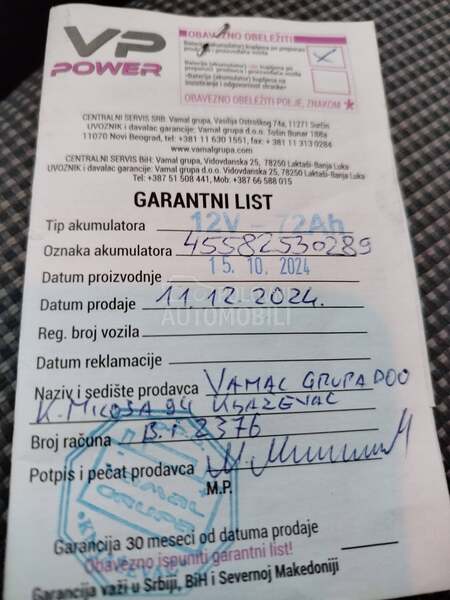 VP
POWER
OBAVEZNO OBELEŽITI
OBAVEZNO OBELEŽITI POLJE, ZNAKOM *
CENTRALNI SERVIS SRB: Vamal grupa, Vasilija Ostroškog 74a, 11271 Surčin
UVOZNIK i davalac garancije: Vamal grupa d.o.o. Tošin Bunar 188a
11070 Novi Beograd, tel: +381 11 630 1551, fax: + 381 11 313 0284
www.vamalgrupa.com
CENTRALNI SERVIS BiH: Vamal grupa, Vidovdanska 25, 78250 Laktaši-Banja Luka
UVOZNIK i davalac garancije: Vamal grupa d.o.o. Vidovdanska 25, 78250 Laktaši-Banja Luka
Tel: +387 51 508 441, Mob: +387 66 588 015
GARANTNI LIST
Tip akumulatora 12V - 72Ah
Oznaka akumulatora 45582530289
Datum proizvodnje 15. 10. 2024
Datum prodaje 11.12.2024.
AUTOMOBILI
Reg. broj vozila
Datum reklamacije
Naziv i sedište prodavca VAMAL GRUPA DOO
K. MILOŠA 94 KNJAŽEVAC
Broj računa B.i 2376
Potpis i pečat prodavca
M.P.
VAMAL GRUPA
Garancija 30 meseci od datuma prodaje
Obavezno ispuniti garantni list!
Garancija važi u Srbiji, BiH i Severnoj Makedoniji